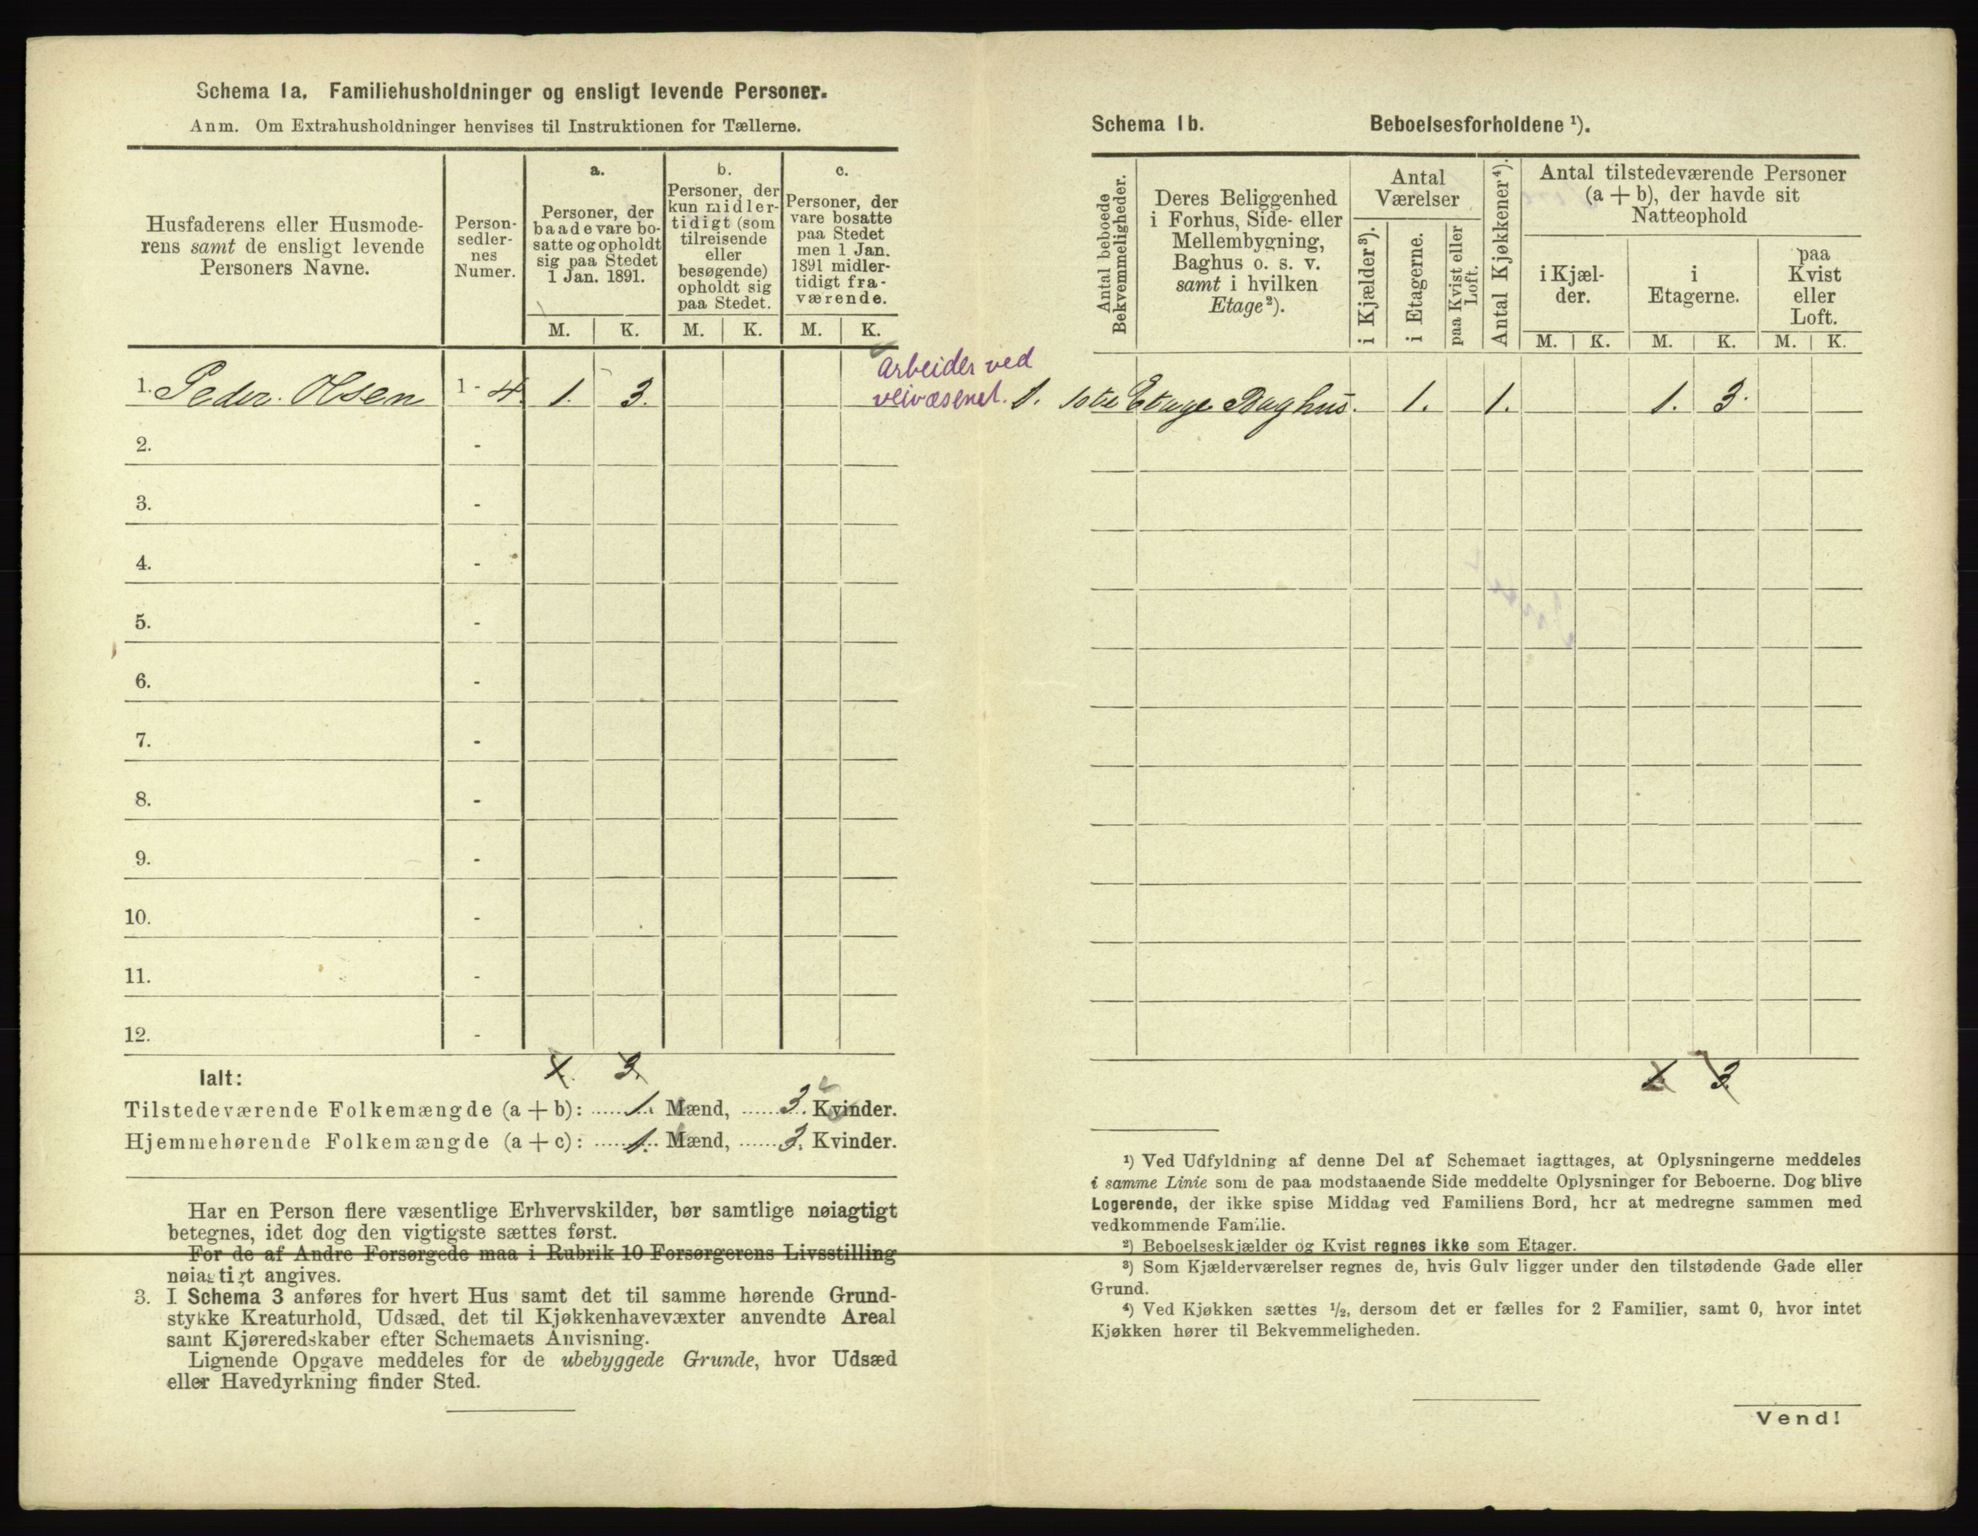 Schema 1a. Familiehusholdninger og ensligt levende Personer.
Anm. Om Extrahusholdninger henvises til Instruktionen for Tællerne.
Husfaderens eller Husmode-
rens samt de ensligt levende
Personers Navne.
Person-
sedler-
nes
Numer.
a.
Personer, der
baade vare bo-
satte og opholdt
sig paa Stedet
1 Jan. 1891.
b.
Personer, der
kun midler-
tidigt (som
tilreisende
eller
besøgende)
opholdt sig
paa Stedet.
c.
Personer, der
vare bosatte
paa Stedet
men 1 Jan.
1891 midler-
tidigt fra-
værende.
M. K. M. K. M. K.
1. Peder Olsen 1 - 4. 1. 3.
Arbeider ved
veivæsenet.
2. -
3. -
4. -
5. -
6. -
7. -
8. -
9. -
10. -
11. -
12. -
Ialt: 1. 3.
Tilstedeværende Folkemængde (a + b): 1. Mænd, 3. Kvinder.
Hjemmehørende Folkemængde (a + c): 1. Mænd, 3. Kvinder.
Har en Person flere væsentlige Erhvervskilder, bør samtlige nøiagtigt
betegnes, idet dog den vigtigste sættes først.
For de af Andre Forsørgede maa i Rubrik 10 Forsørgerens Livsstilling
nøiagtigt angives.
3. I Schema 3 anføres for hvert Hus samt det til samme hørende Grund-
stykke Kreaturhold, Udsæd, det til Kjøkkenhavevæxter anvendte Areal
samt Kjøreredskaber efter Schemaets Anvisning.
Lignende Opgave meddeles for de ubebyggede Grunde, hvor Udsæd
eller Havedyrkning finder Sted.
Schema 1b. Beboelsesforholdene ¹).
Antal beboede
Bekvemmeligheder.
Deres Beliggenhed
i Forhus, Side- eller
Mellembygning,
Baghus o. s. v.
samt i hvilken
Etage²).
Antal
Værelser
i Kjælder³).
i Etagerne.
paa Kvist eller
Loft.
Antal Kjøkkener⁴).
Antal tilstedeværende Personer
(a + b), der havde sit
Natteophold
i Kjæl-
der.
i
Etagerne.
paa
Kvist
eller
Loft.
M. K. M. K. M. K.
1. 1ste Etage Baghus. 1. 1. 1. 3.
1. 3.
¹) Ved Udfyldning af denne Del af Schemaet iagttages, at Oplysningerne meddeles
i samme Linie som de paa modstaaende Side meddelte Oplysninger for Beboerne. Dog blive
Logerende, der ikke spise Middag ved Familiens Bord, her at medregne sammen med
vedkommende Familie.
²) Beboelseskjælder og Kvist regnes ikke som Etager.
³) Som Kjælderværelser regnes de, hvis Gulv ligger under den tilstødende Gade eller
Grund.
⁴) Ved Kjøkken sættes ½, dersom det er fælles for 2 Familier, samt 0, hvor intet
Kjøkken hører til Bekvemmeligheden.
Vend!